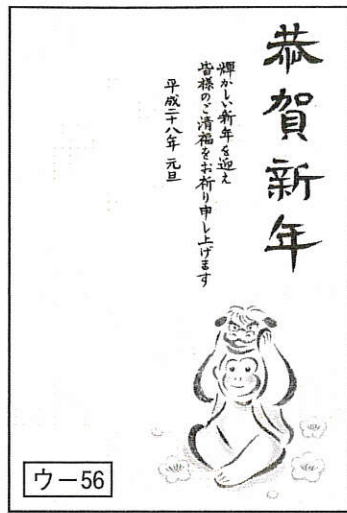 恭賀新年
輝かしい新年を迎え
皆様のご清福をお祈り申し上げます
平成二十八年 元旦
ウー56